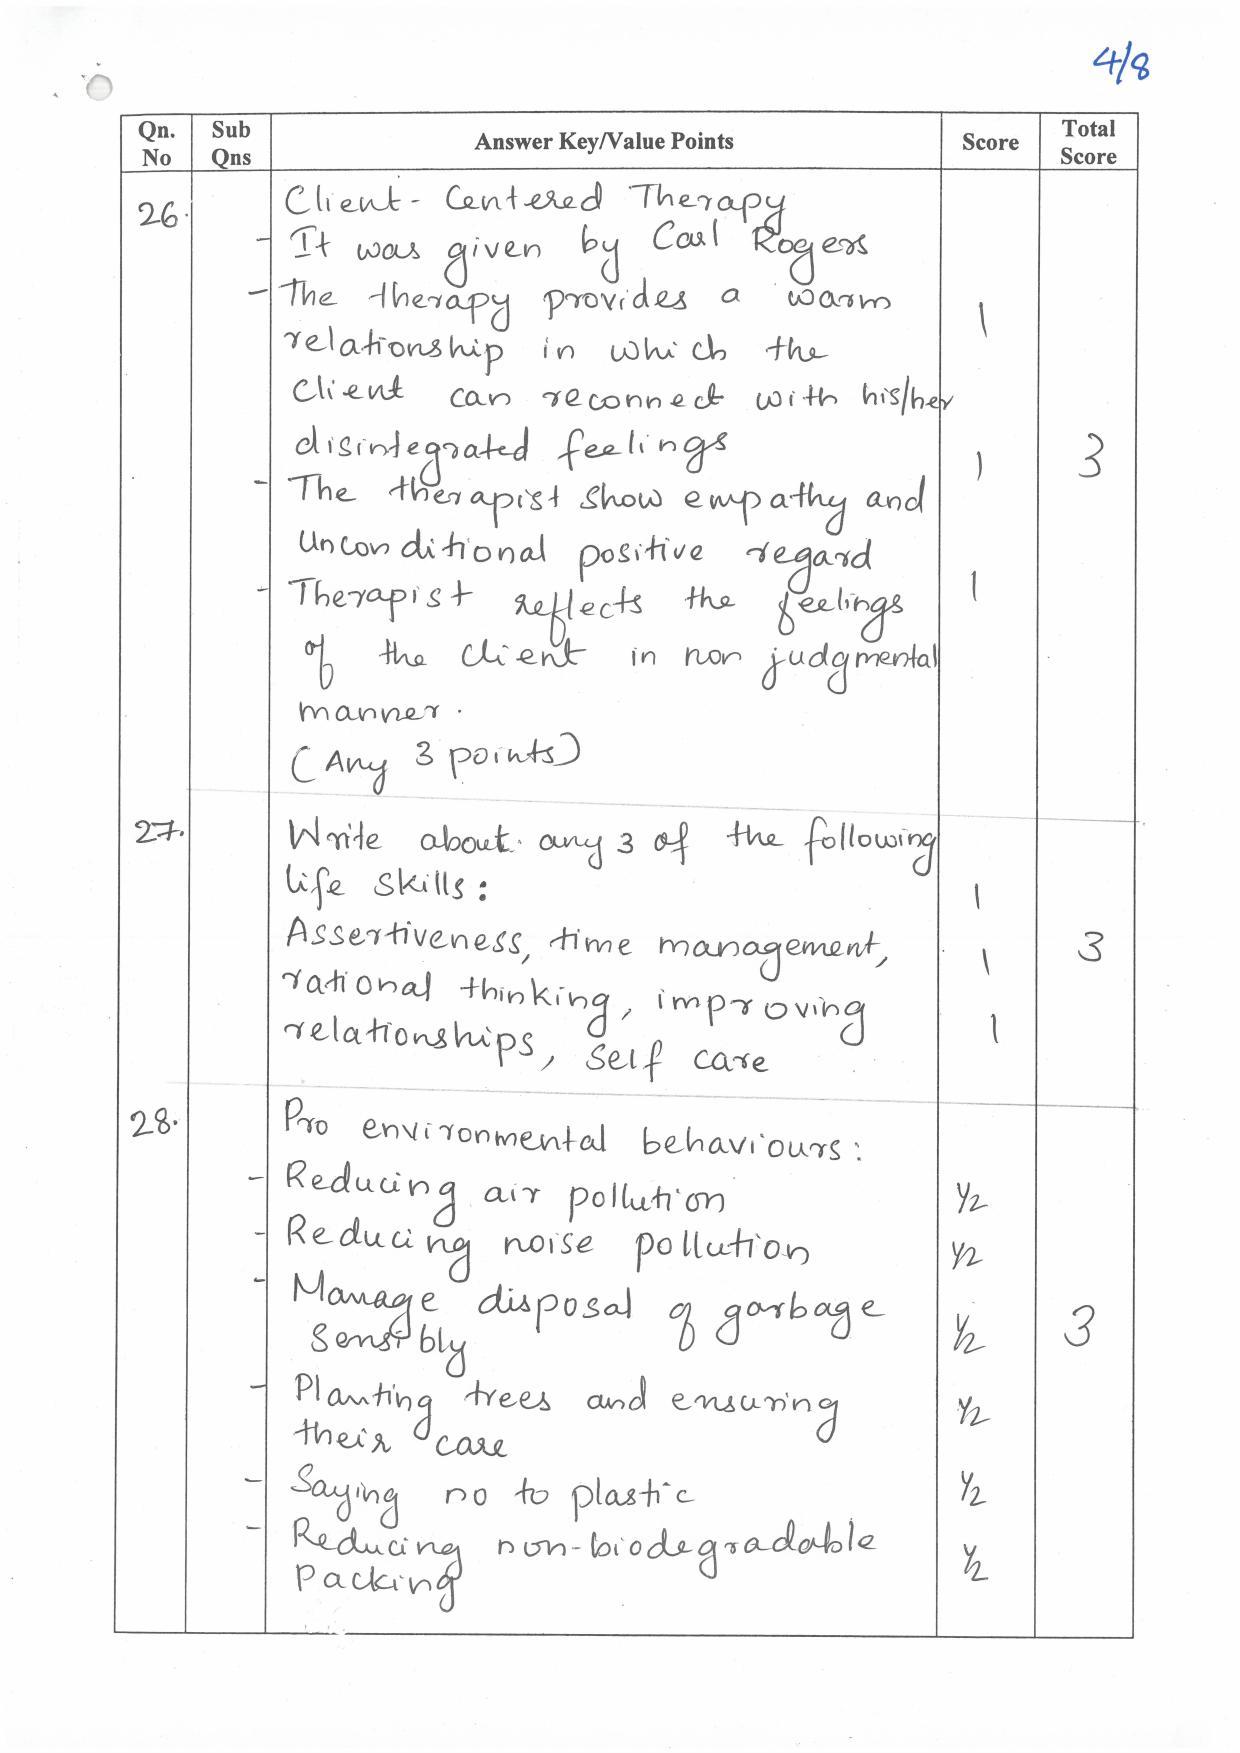 4/8
Qn. No Sub Qns Answer Key/Value Points Score Total Score
26. Client-Centered Therapy
- It was given by Carl Rogers
- The therapy provides a warm 1
relationship in which the
Client can reconnect with his/her
disintegrated feelings 1 3
- The therapist show empathy and
Unconditional positive regard
- Therapist reflects the feelings 1
of the client in non judgmental
manner.
(Any 3 points)
27. Write about any 3 of the following
life skills: 1
Assertiveness, time management, 1 3
rational thinking, improving
relationships, Self care 1
28. Pro environmental behaviours:
- Reducing air pollution 1/2
- Reducing noise pollution 1/2
- Manage disposal of garbage
Sensibly 1/2 3
- Planting trees and ensuring 1/2
their care
- Saying no to plastic 1/2
- Reducing non-biodegradable
Packing 1/2